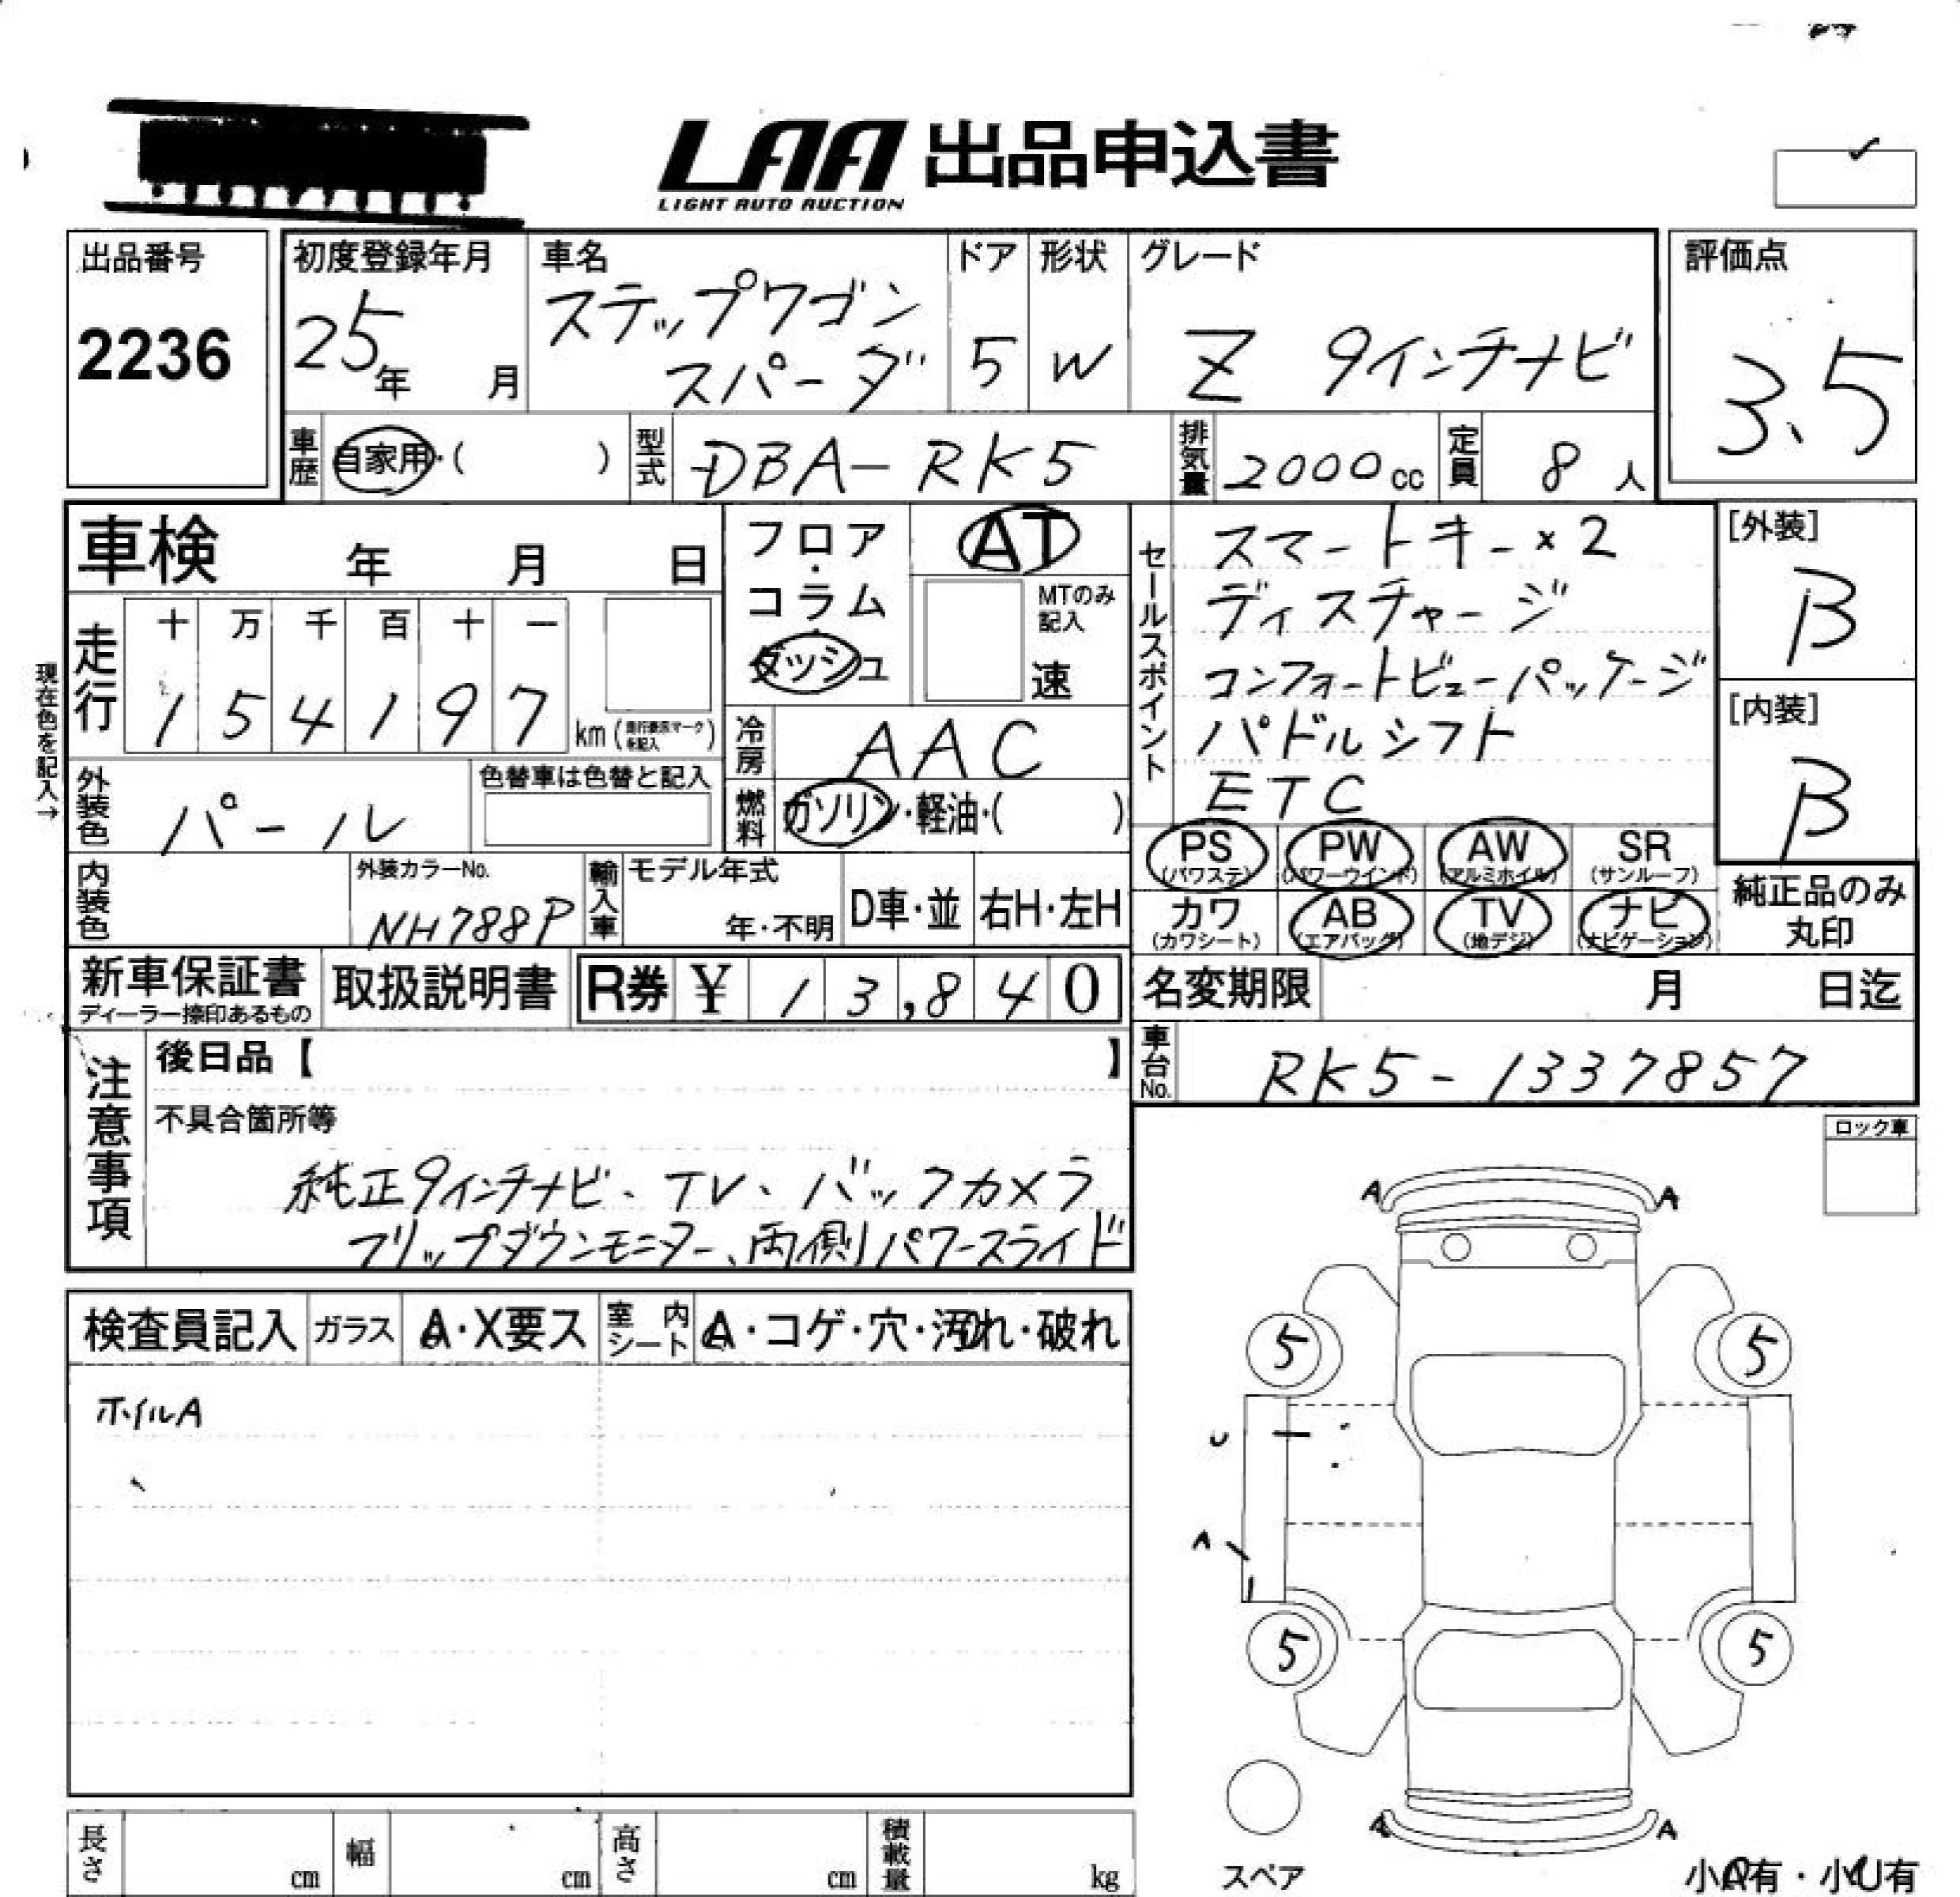 LAA 出品申込書
LIGHT AUTO AUCTION
出品番号
2236
初度登録年月
25年 月
車名
ステップワゴン
スパーダ
ドア
5
形状
W
グレード
Z 9インチナビ
評価点
3.5
車歴
自家用・( )
型式
DBA-RK5
排気量
2000cc
定員
8人
車検 年 月 日
フロア・コラム・ダッシュ
AT
MTのみ記入
速
セールスポイント
スマートキー×2
ディスチャージ
コンフォートビューパッケージ
パドルシフト
ETC
[外装]
B
[内装]
B
現在色を記入→
走行
十 万 千 百 十 一
1 5 4 1 9 7 km
冷房
AAC
外装色
パール
色替車は色替と記入
燃料
ガソリン・軽油・( )
PS (パワステ)
PW (パワーウインド)
AW (アルミホイル)
SR (サンルーフ)
カワ (カワシート)
AB (エアバッグ)
TV (地デジ)
ナビ (ナビゲーション)
純正品のみ丸印
内装色
外装カラーNo.
NH788P
輸入車
モデル年式
年・不明
D車・並
右H・左H
新車保証書
ディーラー捺印あるもの
取扱説明書
R券 ¥ 13,840
名変期限 月 日迄
車台No.
RK5-1337857
注意事項
後日品【 】
不具合箇所等
純正9インチナビ、TV、バックカメラ
フリップダウンモニター、両側パワースライド
ロック車
検査員記入
ガラス
A・X要ス
室内シート
A・コゲ・穴・汚れ・破れ
ホイルA
A A
5 5
U
A
5 5
A A
スペア
小A有・小U有
長さ cm
幅 cm
高さ cm
積載量 kg